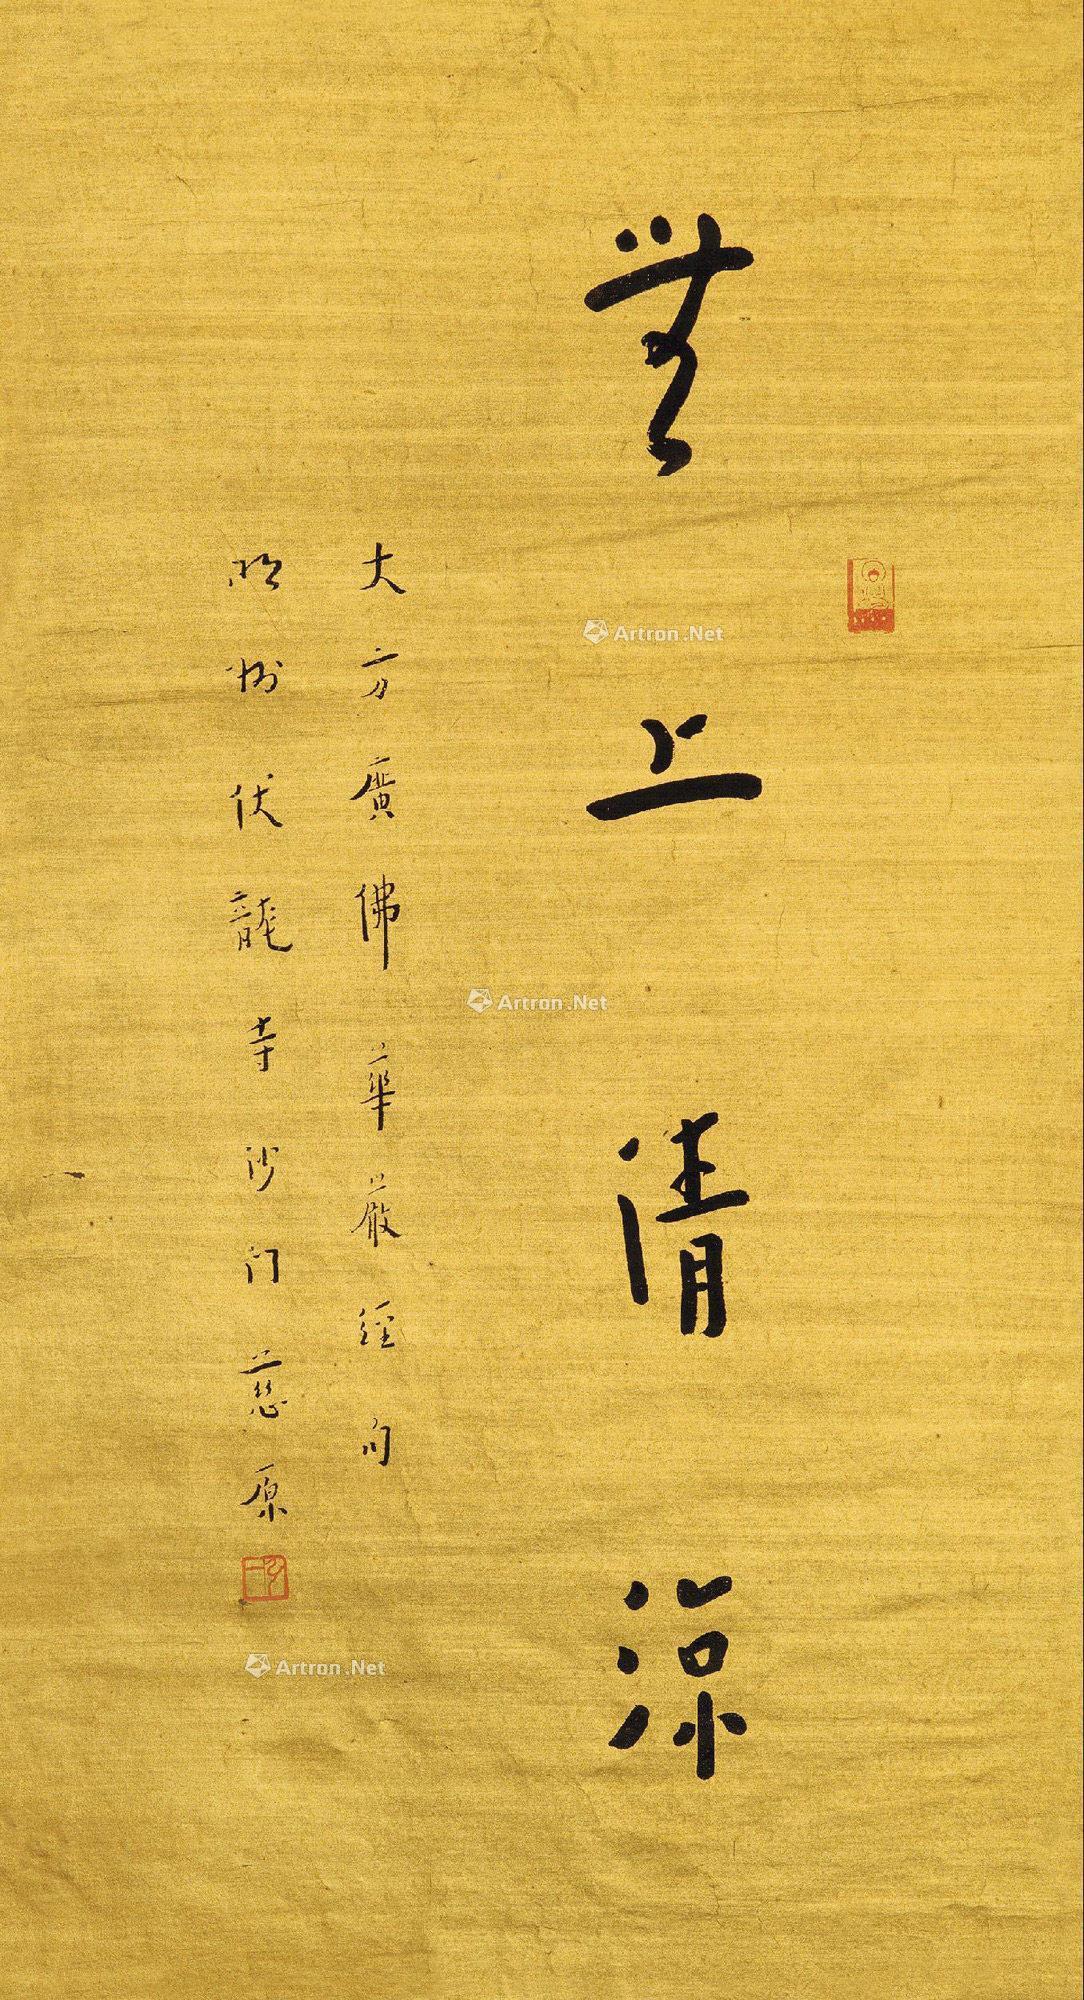 無上清涼
大方廣佛華嚴經句
明州伏龍寺沙门慈原
Artron.Net
Artron.Net
Artron.Net